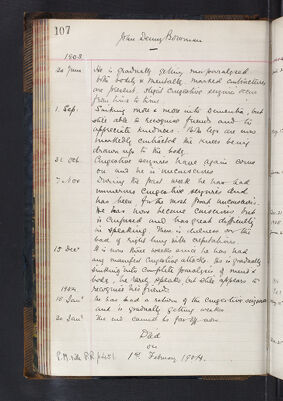 107
John Denny Bowman
1903
20 June He is gradually getting more paralysed
both bodily & mentally. marked contractures
are present, slight congestive seizures occur
from time to time.
1 Sep. Sinking more & more into dementia, but
still able to recognise friends and to
appreciate kindness. Both legs are now
markedly contracted the knees being
drawn up to the body.
31 Oct Congestive seizures have again come
on and he is unconscious
7 Nov During the past week he has had
numerous congestive seizures and
has been for the most part unconscious.
He has now become conscious but
is confused and has great difficulty
in speaking. There is dulness over the
base of right lung with crepitations
15 Dec It is now three weeks since he has had
any manifest congestive attacks. He is gradually
sinking into complete paralysis of mind &
body, he rarely speaks but still appears to
recognise his friends.
1904
15 Jany He has had a return of the congestive seizures
and is gradually getting weaker
30 Jany The end cannot be far off now.
Died
on
1st February 1904.
P.M. vide P.R. p